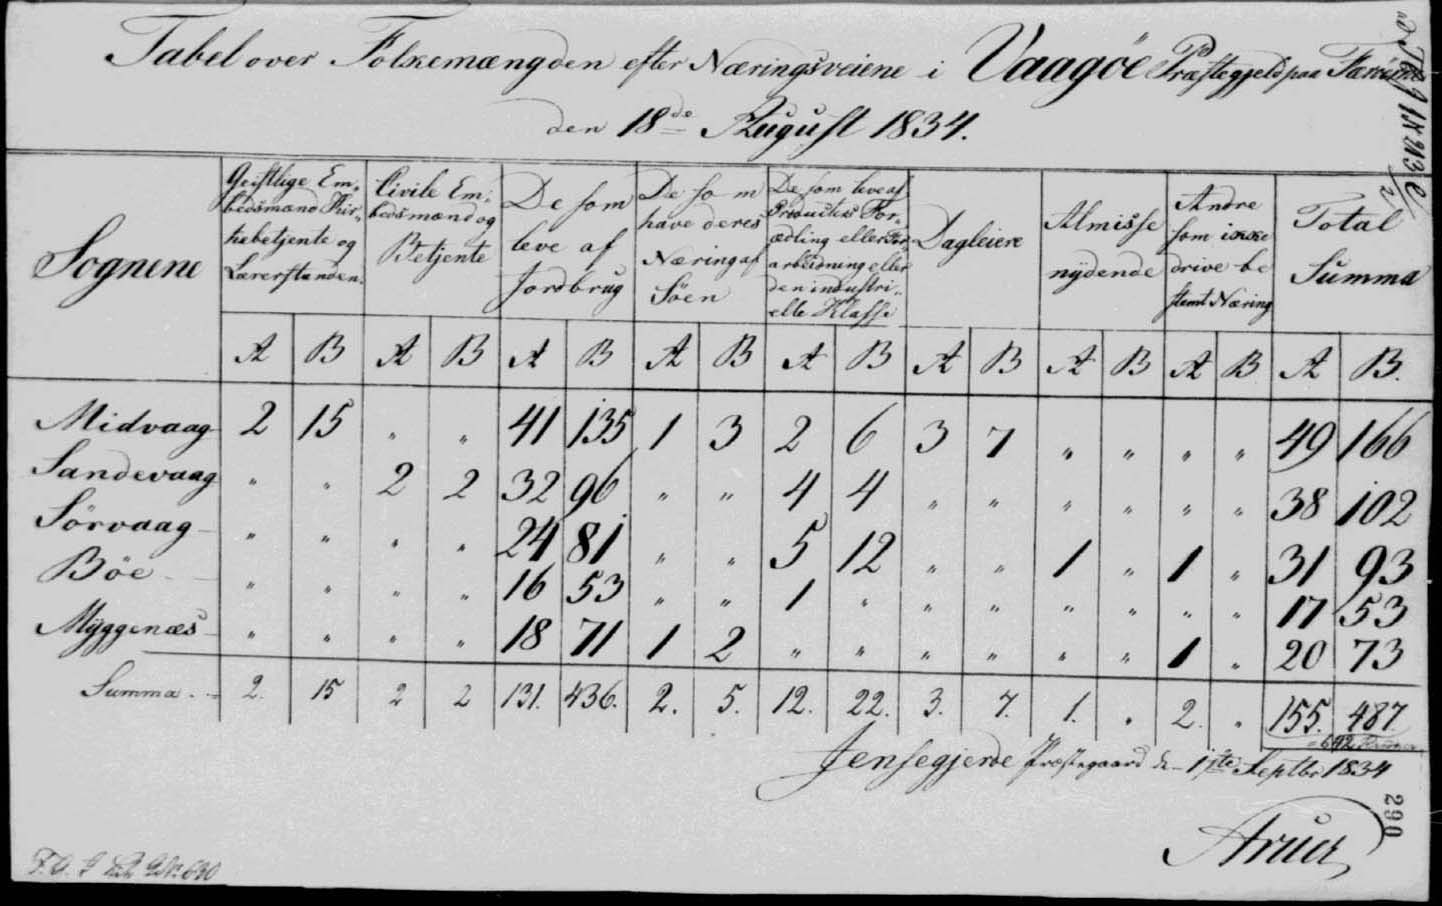 Tabel over Folkemængden efter Næringsveiene i Vaagöe Præstegjeld paa Færöerne
den 18de August 1834.
Sognene
Geistlige Em-
bedsmænd Kir-
kebetjente og
Lærerstanden.
Civile Em-
bedsmænd og
Betjente
De som
leve af
Jordbrug
De som
have deres
Næring af
Söen
De som leve af
Producters For-
ædling eller For-
arbeidning eller
den industri-
elle Klasse
Dagleiere
Almisse
nÿdende
Andre
som ikke
drive be
stemt Næring
Total
Summa
A B A B A B A B A B A B A B A B A B.
Midvaag 2 15 " " 41 135 1 3 2 6 3 7 " " " " 49 166
Sandevaag " " 2 2 32 96 " " 4 4 " " " " " " 38 102
Sörvaag " " " " 24 81 " " 5 12 " " 1 " 1 " 31 93
Böe " " " " 16 53 " " 1 " " " " " " " 17 53
Mÿggenæs " " " " 18 71 1 2 " " " " " " 1 " 20 73
Summa 2. 15 2 2 131. 436. 2. 5. 12. 22. 3. 7. 1. " 2. " 155. 487.
642
Jensegjerde Præstegaard d. 1ste Septbr 1834
290